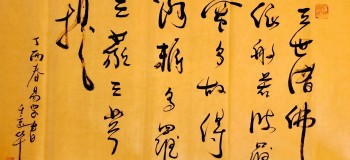 三世諸佛
依般若波羅
蜜多故得
阿耨多羅
三藐三菩
提
丁酉春